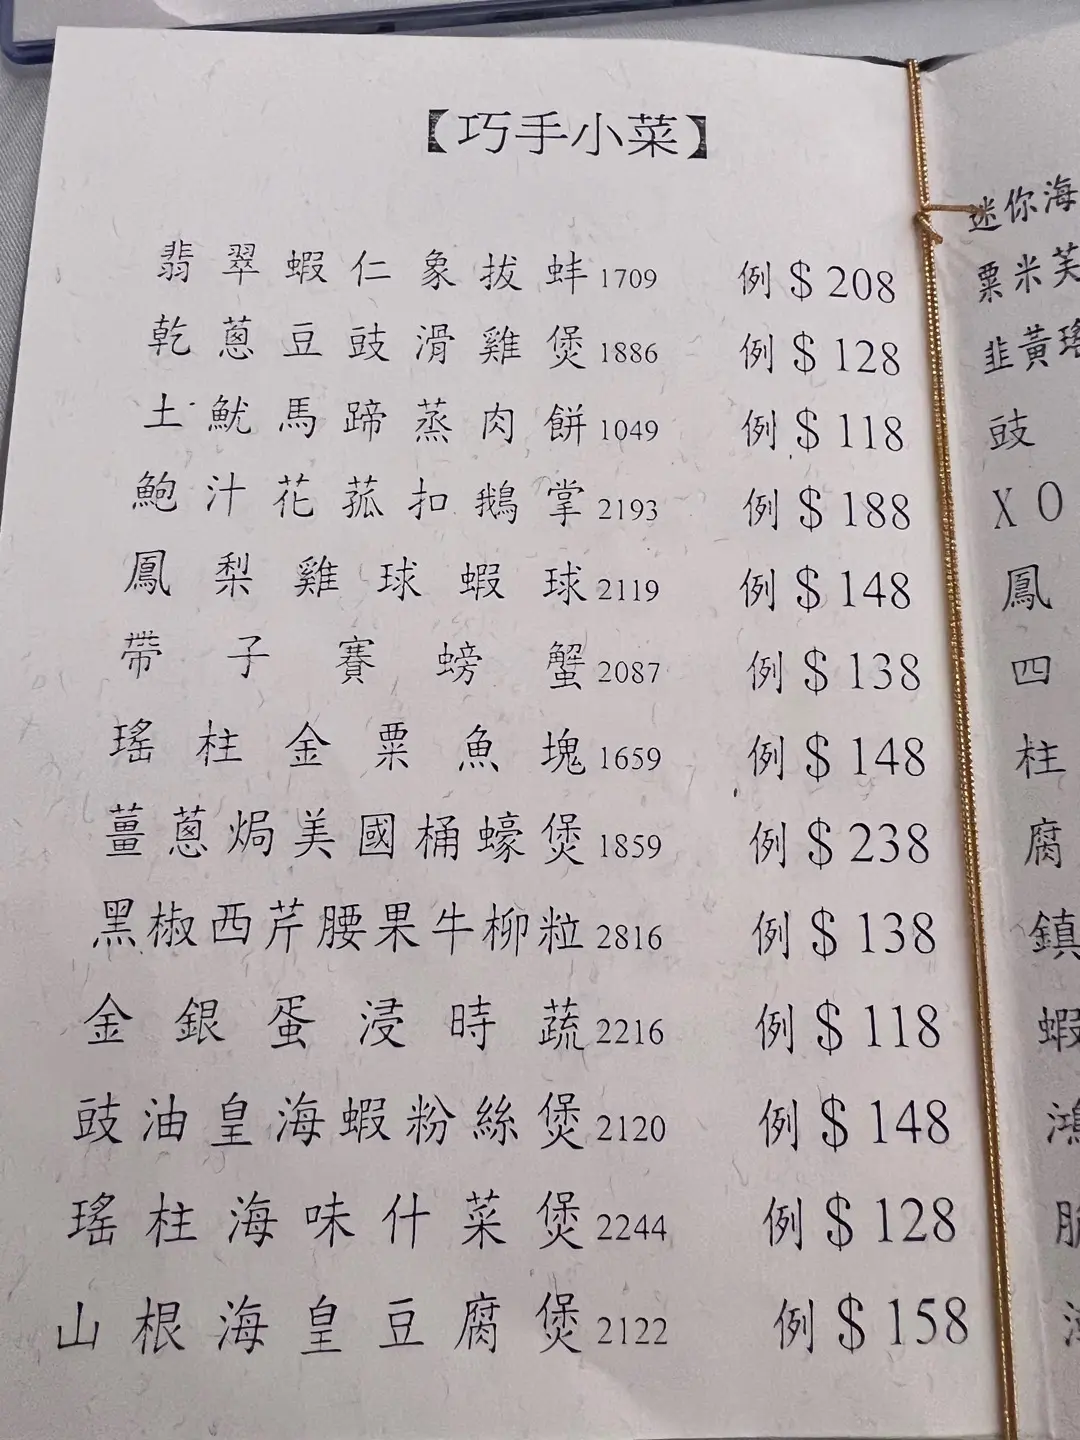 【巧手小菜】
翡翠蝦仁象拔蚌1709 例$208
乾蔥豆豉滑雞煲1886 例$128
土魷馬蹄蒸肉餅1049 例$118
鮑汁花菰扣鵝掌2193 例$188
鳳梨雞球蝦球2119 例$148
帶子賽螃蟹2087 例$138
瑤柱金粟魚塊1659 例$148
薑蔥焗美國桶蠔煲1859 例$238
黑椒西芹腰果牛柳粒2816 例$138
金銀蛋浸時蔬2216 例$118
豉油皇海蝦粉絲煲2120 例$148
瑤柱海味什菜煲2244 例$128
山根海皇豆腐煲2122 例$158
迷你海
粟米芙
韭黃瑤
豉
XO
鳳
四
柱
腐
鎮
蝦